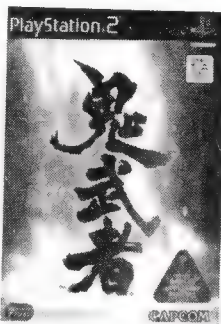 PlayStation.2
鬼
武
者
CAPCOM